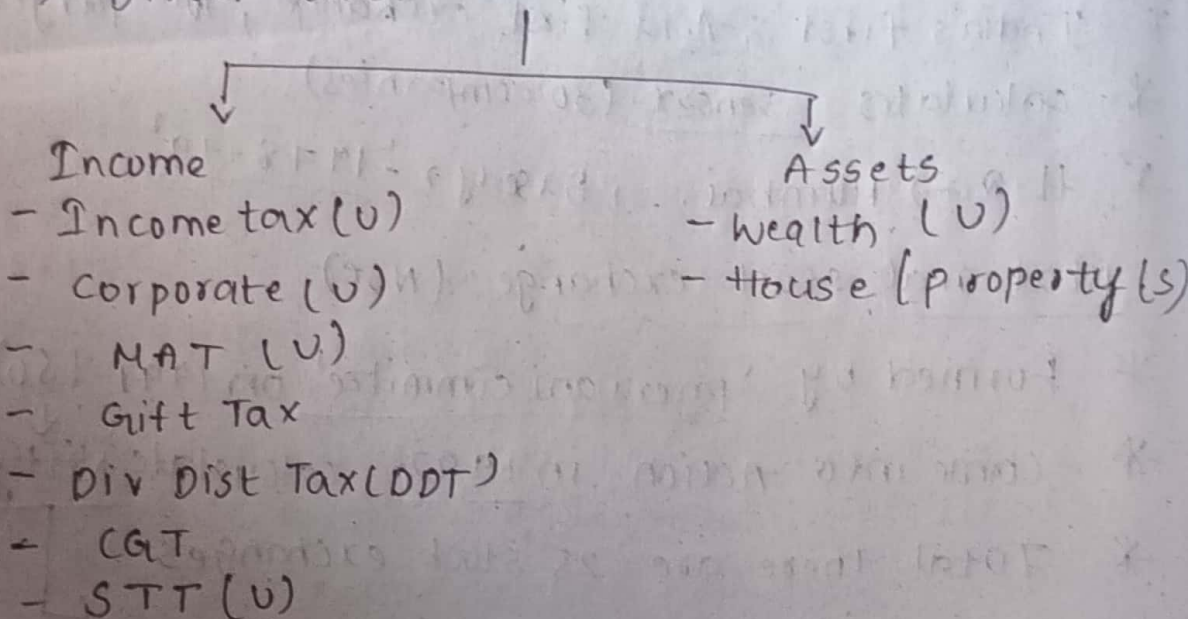 Income
- Income tax (U)
- Corporate (U)
- MAT (U)
- Gift Tax
- Div Dist Tax (DDT)
- CGT
- STT (U)
Assets
- Wealth (U)
- House (property (S)